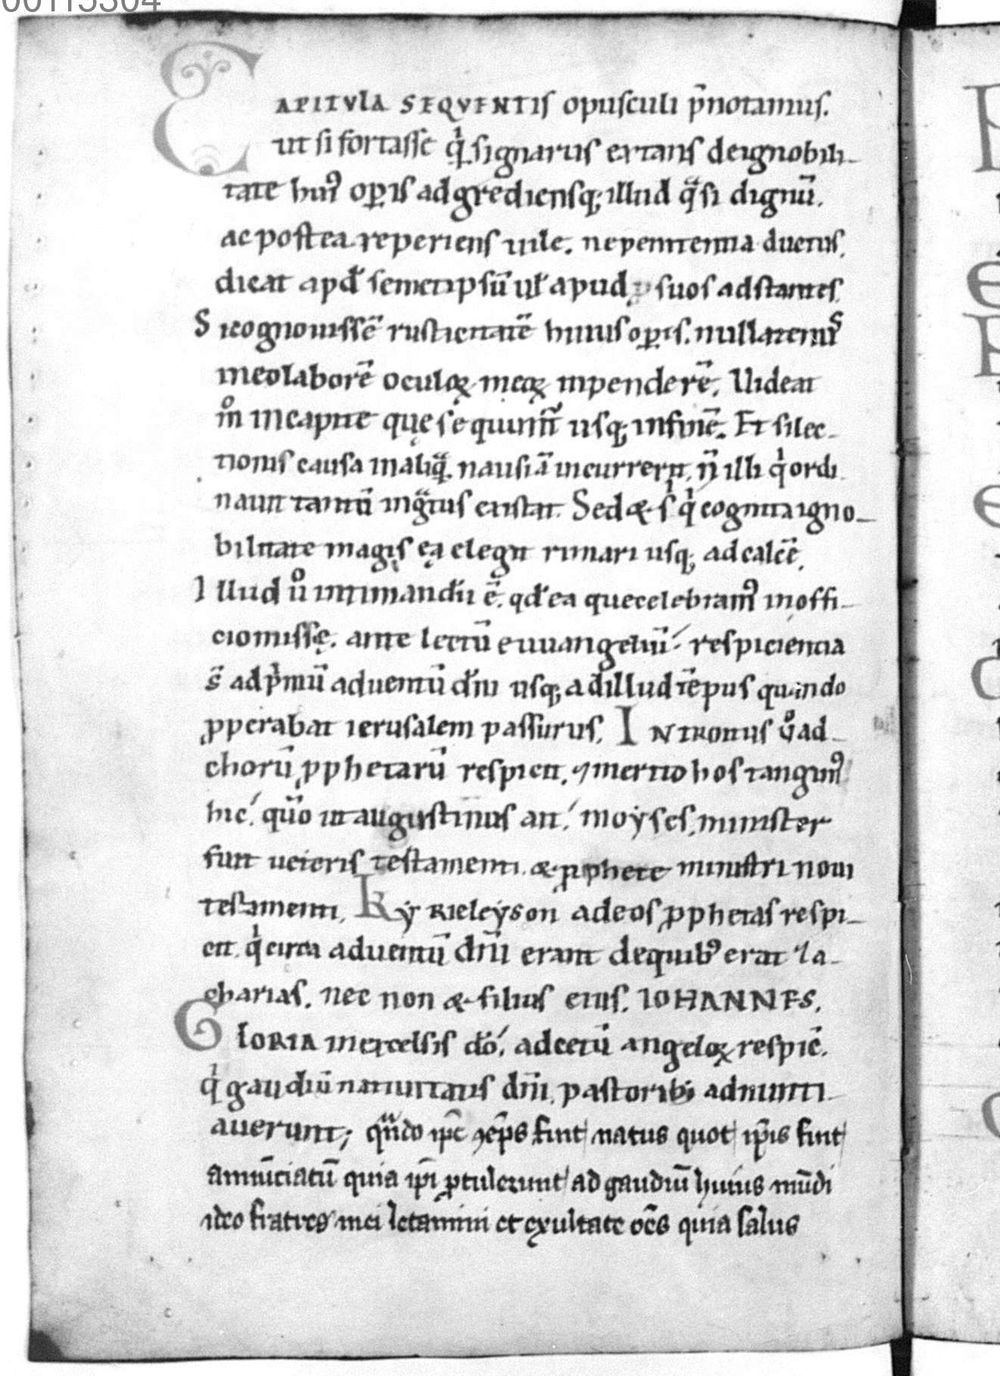 00115304
CAPITVLA SEQVENTIS opusculi p̄notamus.
ut si fortasse q̇ signarus extans deignobili-
tate huiꝰ oꝑis adgrediensq; illud q̃si dignū.
ac postea reperiens uile. nepenitentia ductus.
dicat apđ semetipsū uł apud suos adstantes.
Si cognouissē rusticitatē huius oꝑis. nullatenuˢ
meolaborē oculoꝝ meoꝝ inpenderē. Uideat
m̊ incapite quę se quunt̃ usq; infinē. Et silec-
tionis causa inaliq̃ nausiā incurrerit. n̄ illi q̇ ordi
nauit tantū ing̃tus existat. Sed & s q̇ cognita igno-
bilitate magis ea elegit rimari usq; adcalcē.
Illud ů intimandū ē. qđ ea quecelebramꝰ inoffi-
ciomissę. ante lectū euuangeliū respicientia
s̄ adp̍mū aduentū dn̄i usq; adillud tēpus quando
ꝓperabat ierusalem passurus. INtroitus ů ad
chorū ꝓphetarū respicit. ⁊ merito hos tangimꝰ
hic. quō ut augustinus ait. moyses minister
fuit ueteris testamenti. & ꝓphete ministri noui
testamenti. Kyrieleyson adeos ꝓphetas respi-
cit. q̇ circa aduentū dn̄i erant dequibꝰ erat za-
charias. nec non & filius eius. IOHANNES.
GLORIA inexcelsis dō. adcetū angeloꝝ respic̄.
q̇ gaudiū natiuitatis dn̄i pastoribꝰ adnunti
auerunt; qn̄do ip̄e ⁊ceps fuit natus quot ip̄is fuit
annūciatū quia ip̄i ꝓtulerunt ad gaudiū huius mūdi
ideo fratres mei letamini et exultate oēs quia salus